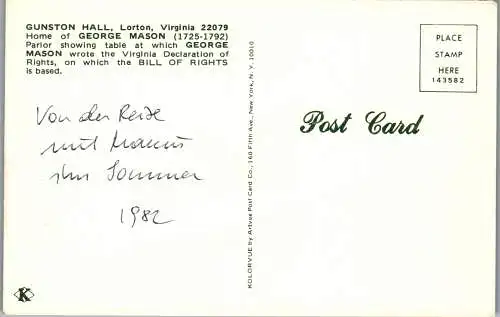 GUNSTON HALL, Lorton, Virginia 22079
Home of GEORGE MASON (1725-1792)
Parlor showing table at which GEORGE
MASON wrote the Virginia Declaration of
Rights, on which the BILL OF RIGHTS
is based.
Von der Reise
mit
im Sommer
1982
KOLORVUE by Artvue Post Card Co., 160 Fifth Ave., New York, N. Y. 10010
Post Card
PLACE
STAMP
HERE
143582
K